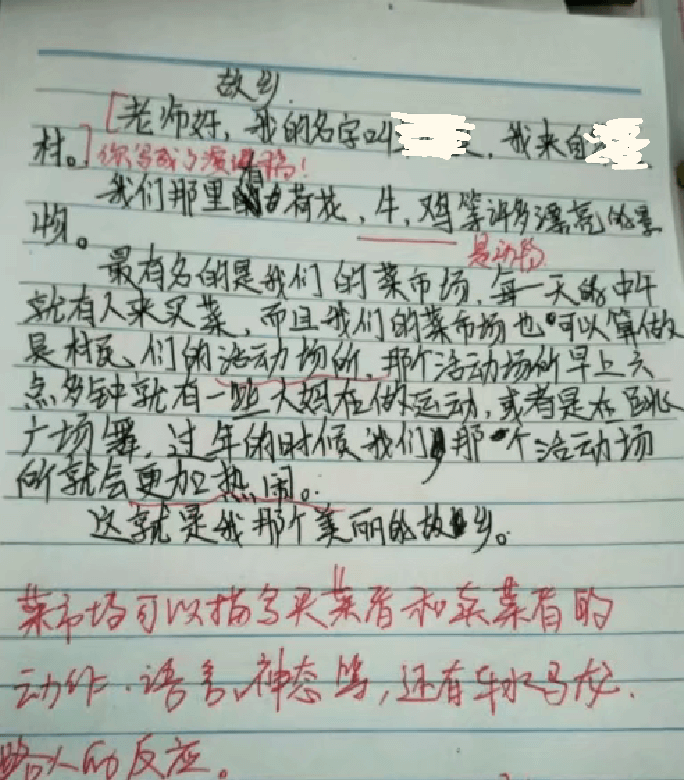 故乡
[老师好,我的名字叫    ,我来自
村。]你写成了演讲稿!
我们那里有荷花、牛、鸡等许多漂亮的景
物。
是动物
最有名的是我们的菜市场,每一天的中午
就有人来买菜,而且我们的菜市场也可以算做
是村民们的活动场所,那个活动场所早上六
点多钟就有一些大妈在做运动,或者是在跳
广场舞,过年的时候我们那个活动场
所就会更加热闹。
这就是我那个美丽的故乡。
菜市场可以描写买菜者和卖菜者的
动作、语言、神态等,还有车水马龙、
路人的反应。